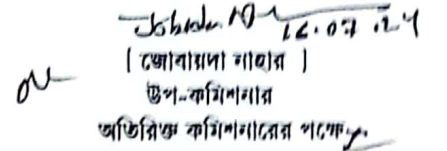 16.07.24
( জোবায়দা নাহার )
উপ-কমিশনার
অতিরিক্ত কমিশনারের পক্ষে